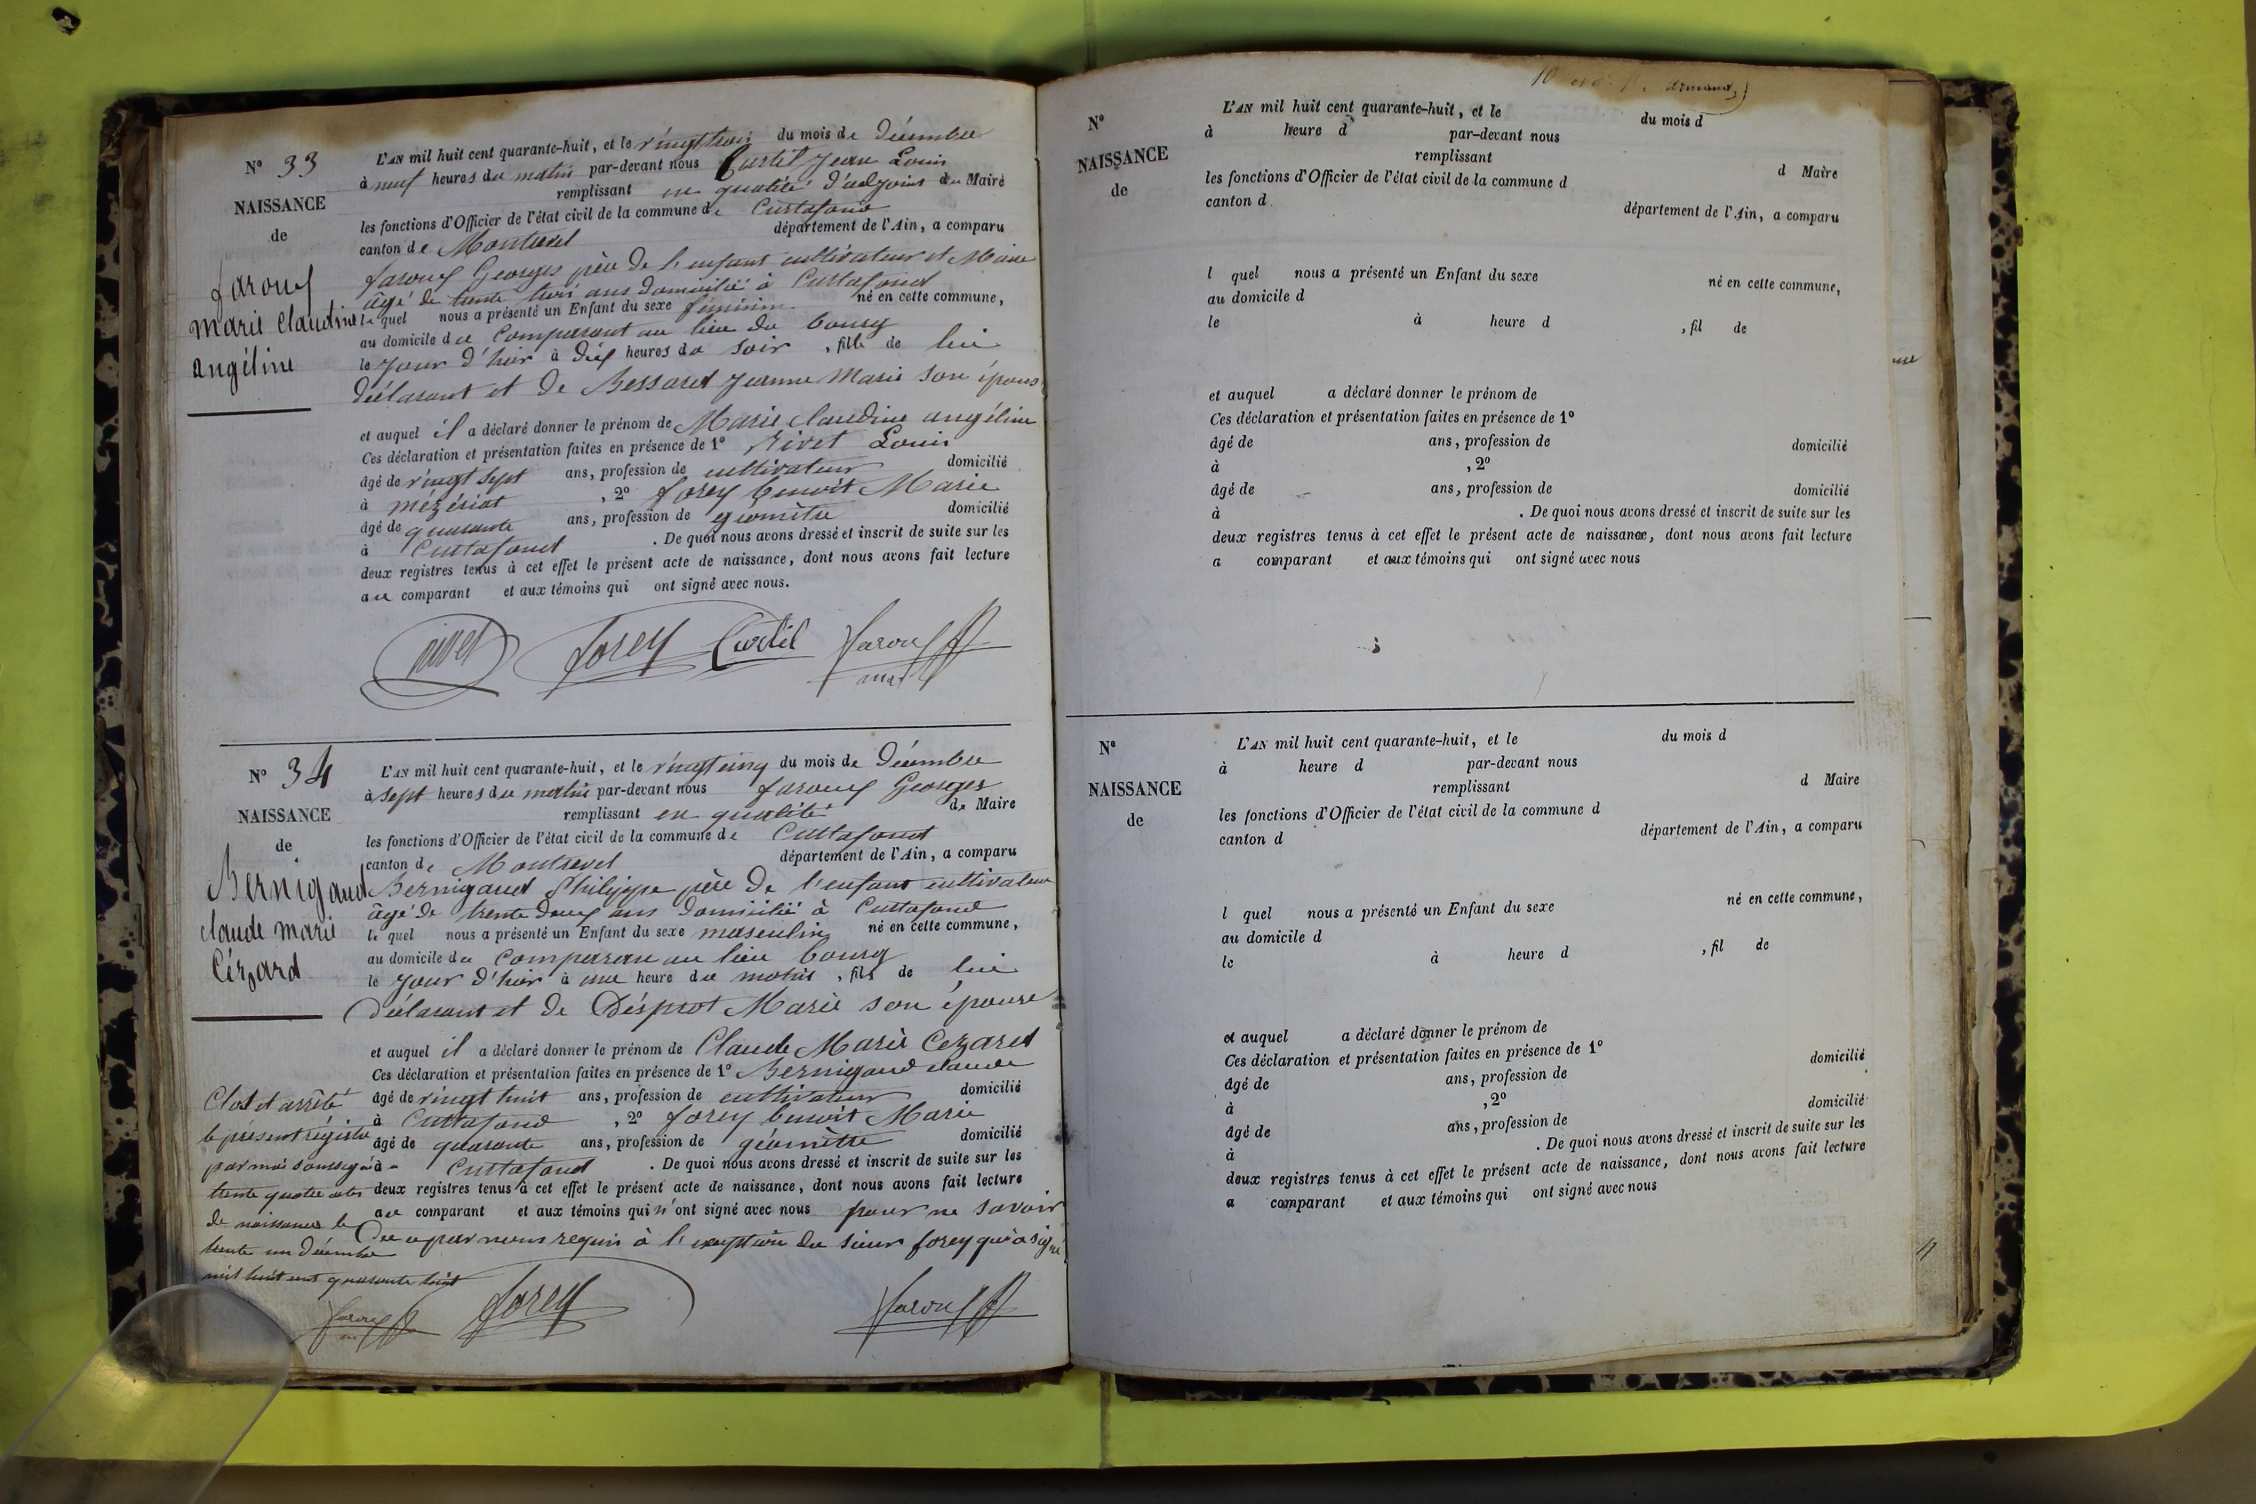 N° 33
NAISSANCE
de
faroux
marie Claudine
angéline
L'AN mil huit cent quarante-huit, et le vingt trois du mois de Décembre
à neuf heures du matin par-devant nous Curtil Jean Louis
remplissant en qualité d'adjoint du Maire
les fonctions d'Officier de l'état civil de la commune de Curtafond
canton de Montrevel département de l'Ain, a comparu
faroux Georges père de l'enfant cultivateur et Maire
âgé de trente trois ans domicilié à Curtafond
le quel nous a présenté un Enfant du sexe féminin né en cette commune,
au domicile du Comparant au lieu du bourg
le jour d'hier à dix heures du soir , fille de lui
déclarant et de Bessard Jeanne Marie son épouse
et auquel il a déclaré donner le prénom de Marie Claudine angéline
Ces déclaration et présentation faites en présence de 1° Rivet Louis
âgé de vingt sept ans, profession de cultivateur domicilié
à mézériat , 2° forey benoit Marie
âgé de quarante ans, profession de géomètre domicilié
à Curtafond . De quoi nous avons dressé et inscrit de suite sur les
deux registres tenus à cet effet le présent acte de naissance, dont nous avons fait lecture
au comparant et aux témoins qui ont signé avec nous.
rivet forey Curtil faroux
N° 34
NAISSANCE
de
Bernigaud
claude marie
Cézard
L'AN mil huit cent quarante-huit, et le vingt cinq du mois de Décembre
à sept heures du matin par-devant nous faroux Georges
remplissant en qualité de Maire
les fonctions d'Officier de l'état civil de la commune de Curtafond
canton de Montrevel département de l'Ain, a comparu
Bernigaud Philippe père de l'enfant cultivateur
âgé de trente deux ans domicilié à Curtafond
le quel nous a présenté un Enfant du sexe masculin né en cette commune,
au domicile du comparan au lieu bourg
le jour d'hier à une heure du matin , fils de lui
déclarant et de Désprot Marie son épouse
et auquel il a déclaré donner le prénom de Claude Marie Cezard
Ces déclaration et présentation faites en présence de 1° Bernigaud claude
âgé de vingt huit ans, profession de cultivateur domicilié
à Curtafond , 2° forey benoit Marie
âgé de quarante ans, profession de géomètre domicilié
à Curtafond . De quoi nous avons dressé et inscrit de suite sur les
deux registres tenus à cet effet le présent acte de naissance, dont nous avons fait lecture
au comparant et aux témoins qui n'ont signé avec nous pour ne savoir
De ce par nous requis à l'exception du sieur forey qui a signé
Clos et arrêté
le présent régistre
par moi soussigné à
trente quatre actes
de naissances le
trente un Décembre
mil huit cent quarante huit
faroux forey faroux
N°
NAISSANCE
de
L'AN mil huit cent quarante-huit, et le du mois d
à heure d par-devant nous
remplissant d Maire
les fonctions d'Officier de l'état civil de la commune d
canton d département de l'Ain, a comparu
l quel nous a présenté un Enfant du sexe né en cette commune,
au domicile d
le à heure d , fil de
et auquel a déclaré donner le prénom de
Ces déclaration et présentation faites en présence de 1°
âgé de ans, profession de domicilié
à , 2°
âgé de ans, profession de domicilié
à . De quoi nous avons dressé et inscrit de suite sur les
deux registres tenus à cet effet le présent acte de naissance, dont nous avons fait lecture
a comparant et aux témoins qui ont signé avec nous
N°
NAISSANCE
de
L'AN mil huit cent quarante-huit, et le du mois d
à heure d par-devant nous
remplissant d Maire
les fonctions d'Officier de l'état civil de la commune d
canton d département de l'Ain, a comparu
l quel nous a présenté un Enfant du sexe né en cette commune,
au domicile d
le à heure d , fil de
et auquel a déclaré donner le prénom de
Ces déclaration et présentation faites en présence de 1°
âgé de ans, profession de domicilié
à , 2°
âgé de ans, profession de domicilié
à . De quoi nous avons dressé et inscrit de suite sur les
deux registres tenus à cet effet le présent acte de naissance, dont nous avons fait lecture
a comparant et aux témoins qui ont signé avec nous